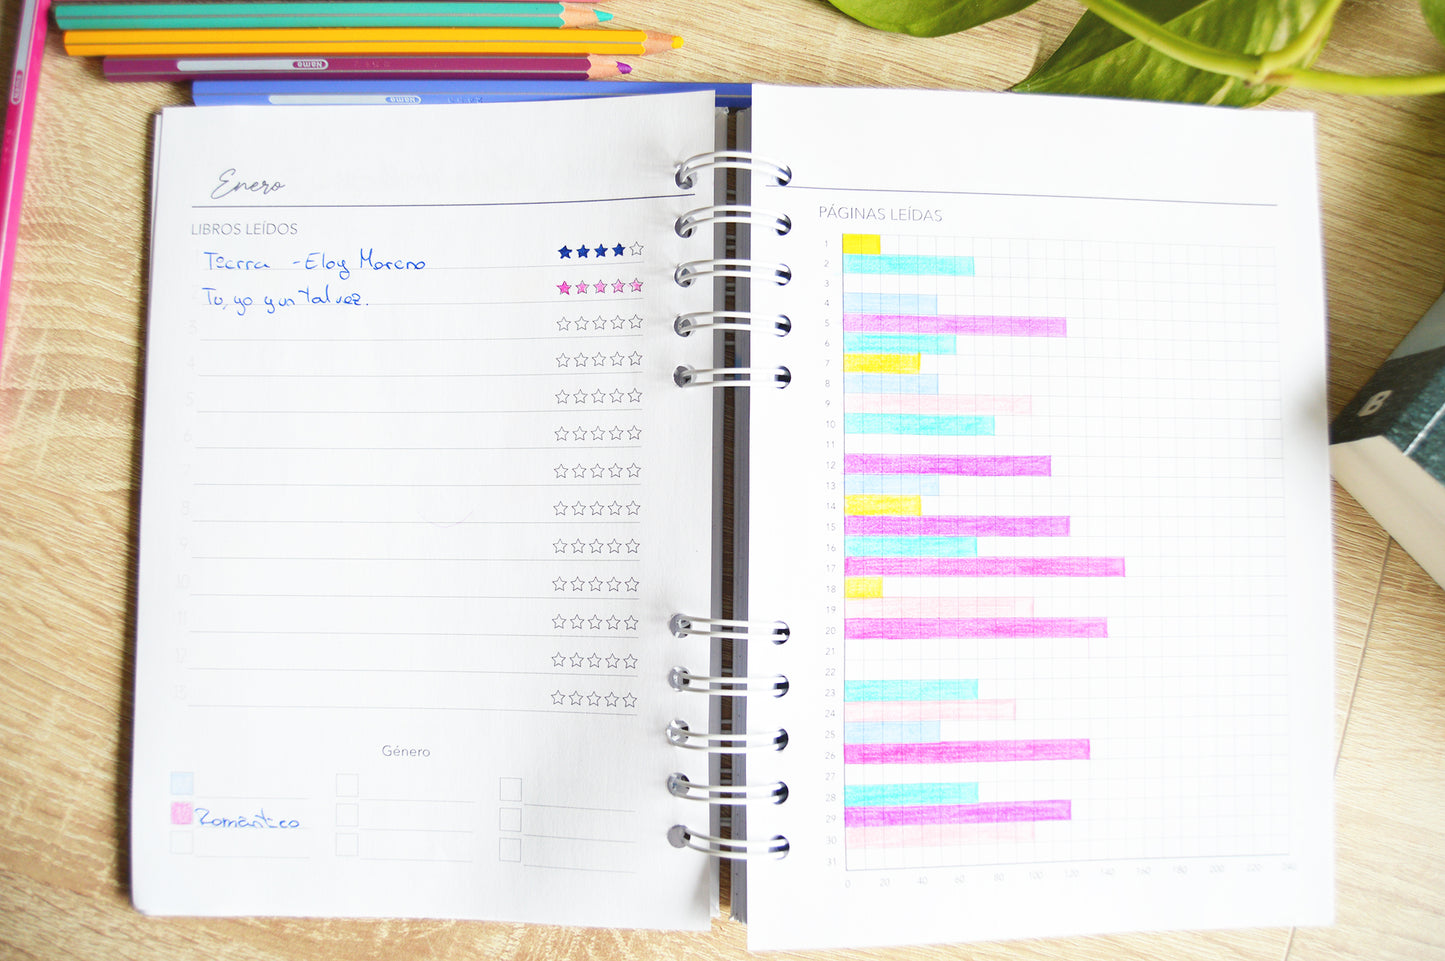 Enero
LIBROS LEÍDOS
Tierra - Eloy Moreno
Tu, yo y un tal vez.
3
4
5
6
7
8
9
10
11
12
13
Género
Romántico
PÁGINAS LEÍDAS
1
2
3
4
5
6
7
8
9
10
11
12
13
14
15
16
17
18
19
20
21
22
23
24
25
26
27
28
29
30
31
0 20 40 60 80 100 120 140 160 180 200 220 240
Name
Name
B